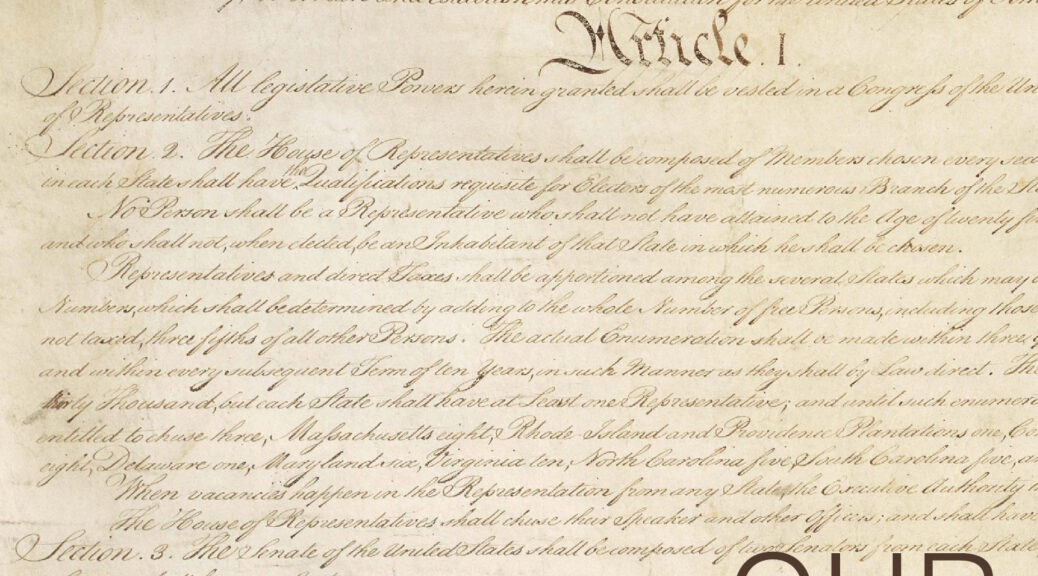 do ordain and establish this Constitution for the United States of Ame
Article. I.
Section. 1. All legislative Powers herein granted shall be vested in a Congress of the Uni
of Representatives.
Section. 2. The House of Representatives shall be composed of Members chosen every seco
in each State shall have the Qualifications requisite for Electors of the most numerous Branch of the Sta
No Person shall be a Representative who shall not have attained to the Age of twenty fiv
and who shall not, when elected, be an Inhabitant of that State in which he shall be chosen.
Representatives and direct Taxes shall be apportioned among the several States which may
Numbers, which shall be determined by adding to the whole Number of free Persons, including those
not taxed, three fifths of all other Persons. The actual Enumeration shall be made within three
and within every subsequent Term of ten Years, in such Manner as they shall by Law direct. The
thirty Thousand, but each State shall have at Least one Representative; and until such enumera
entitled to chuse three, Massachusetts eight, Rhode-Island and Providence Plantations one, Con
eight, Delaware one, Maryland six, Virginia ten, North Carolina five, South Carolina five, an
When vacancies happen in the Representation from any State, the Executive Authority
The House of Representatives shall chuse their Speaker and other Officers; and shall have
Section. 3. The Senate of the United States shall be composed of two Senators from each State
OUR